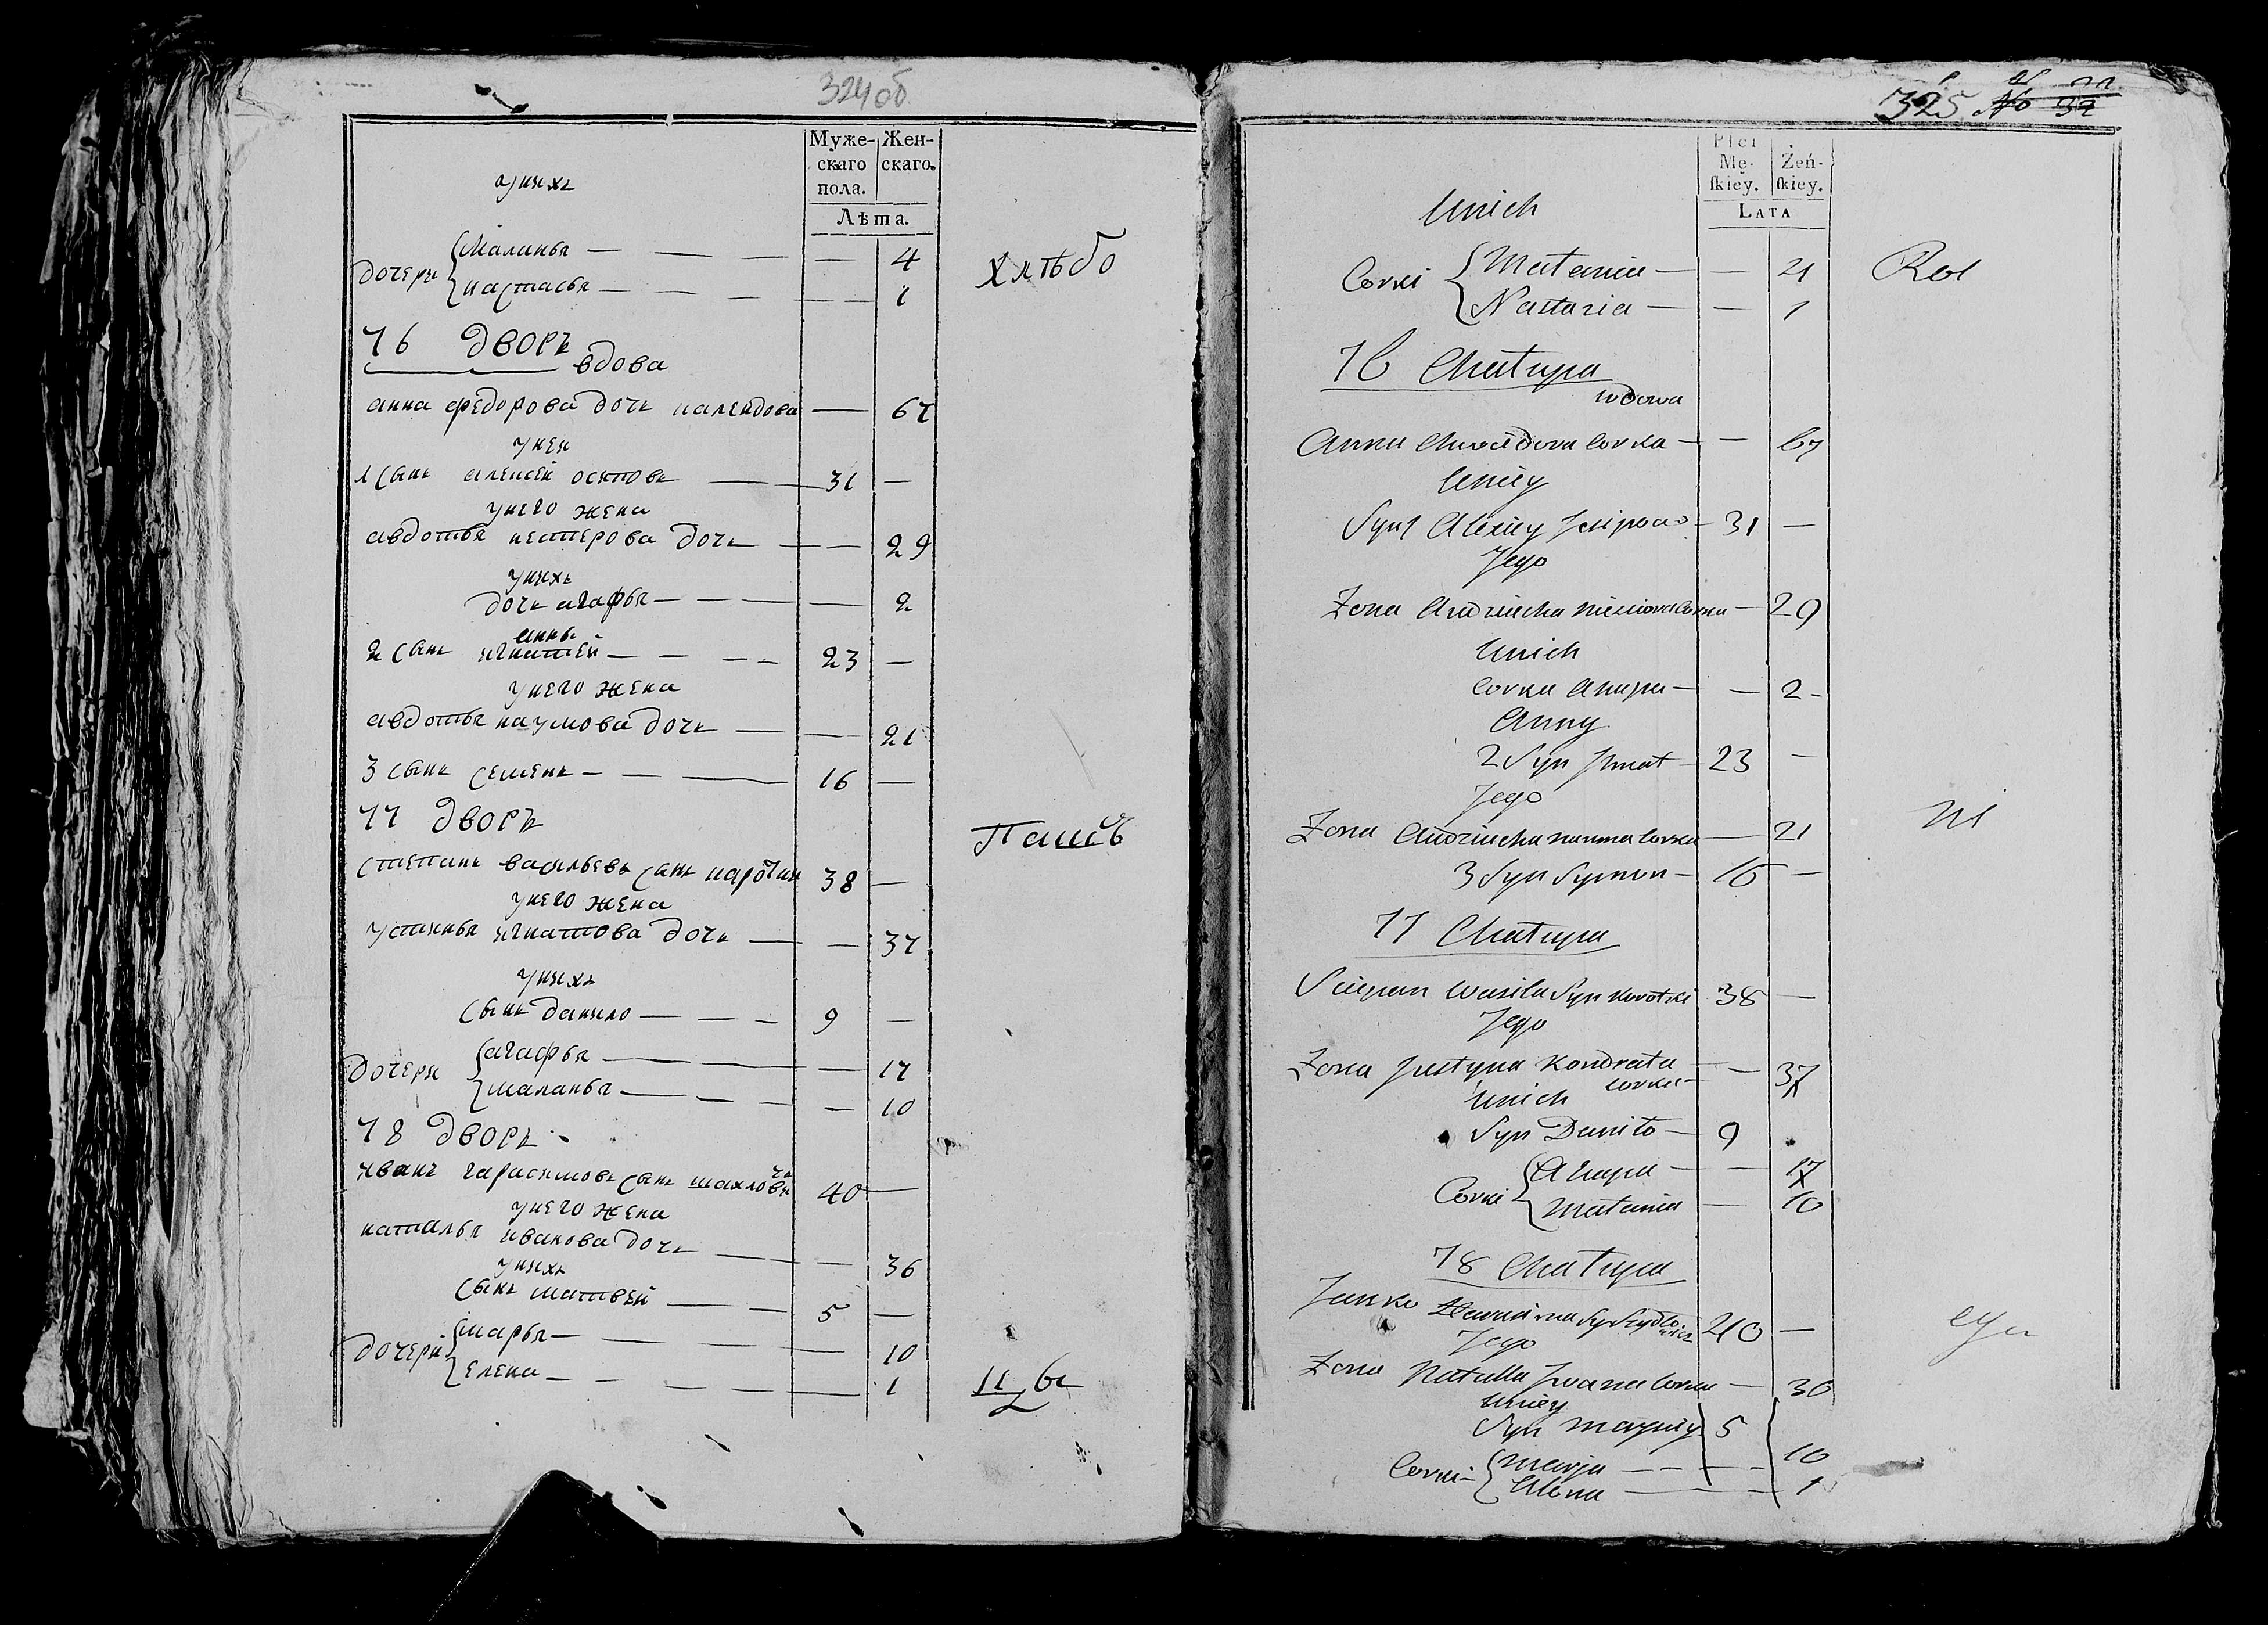 324об
Муже- Жен-
скаго скаго.
пола.
Лѣта.
унихъ
дочери
Маланья — — — — 4
настасья — — — — 1
76 дворъ
вдова
анна федорова дочь — 67
унеи
1 сынъ алексей осиповъ — 31 —
унего жена
авдотья нестерова дочь — — 29
унихъ
дочь агафья — — — — 2
анны
2 сынъ игнатей — — — 23 —
унего жена
авдотья наумова дочь — — 21
3 сынъ семенъ — — 16 —
77 дворъ
степанъ васильевъ сынъ 38 —
унего жена
устинья игнатова дочь — — 37
унихъ
сынъ данило — — — 9 —
дочери
агафья — — 17
маланья — — — 10
78 дворъ
иванъ гарасимовъ сынъ 40 —
унего жена
наталья иванова дочь — — 36
унихъ
сынъ матвей — — 5 —
дочери
марья — — — 10
елена — — — — 1
хлѣбо
Пашъ
цы
325 No
Płci
Mę- Żeń-
skiey. skiey.
LATA
Unich
Corki
Małania — — 4
Nastazia — — 1
Rol
76 Chałupa
wdowa
Anna Chwiedora Corka — — 67
Uniey
Syn 1 Alexiey Jesipowo — 31 —
Jego
Zona Audziucha Corka — 29
Unich
Corka Ahapa — — 2 —
Anny
2 Syn Jhnat — 23 —
Jego
Zona Audziucha nauma Corka — 21
3 Syn Symon — 16 —
ni
77 Chałupa
Sciepan Wasila Syn Korotki 38 —
Jego
Zona Justyna Kondrata — — 37
corka —
Unich
Syn Daniło — 9
Corki
Ahapa — — 17
Małania — 10
78 Chałupa
Janko Syn 40 —
Jego
Zona Natalla Jwana Corka — 36
Uniey
Syn 5
Corki —
Marja — — — 10
Alona — — 1